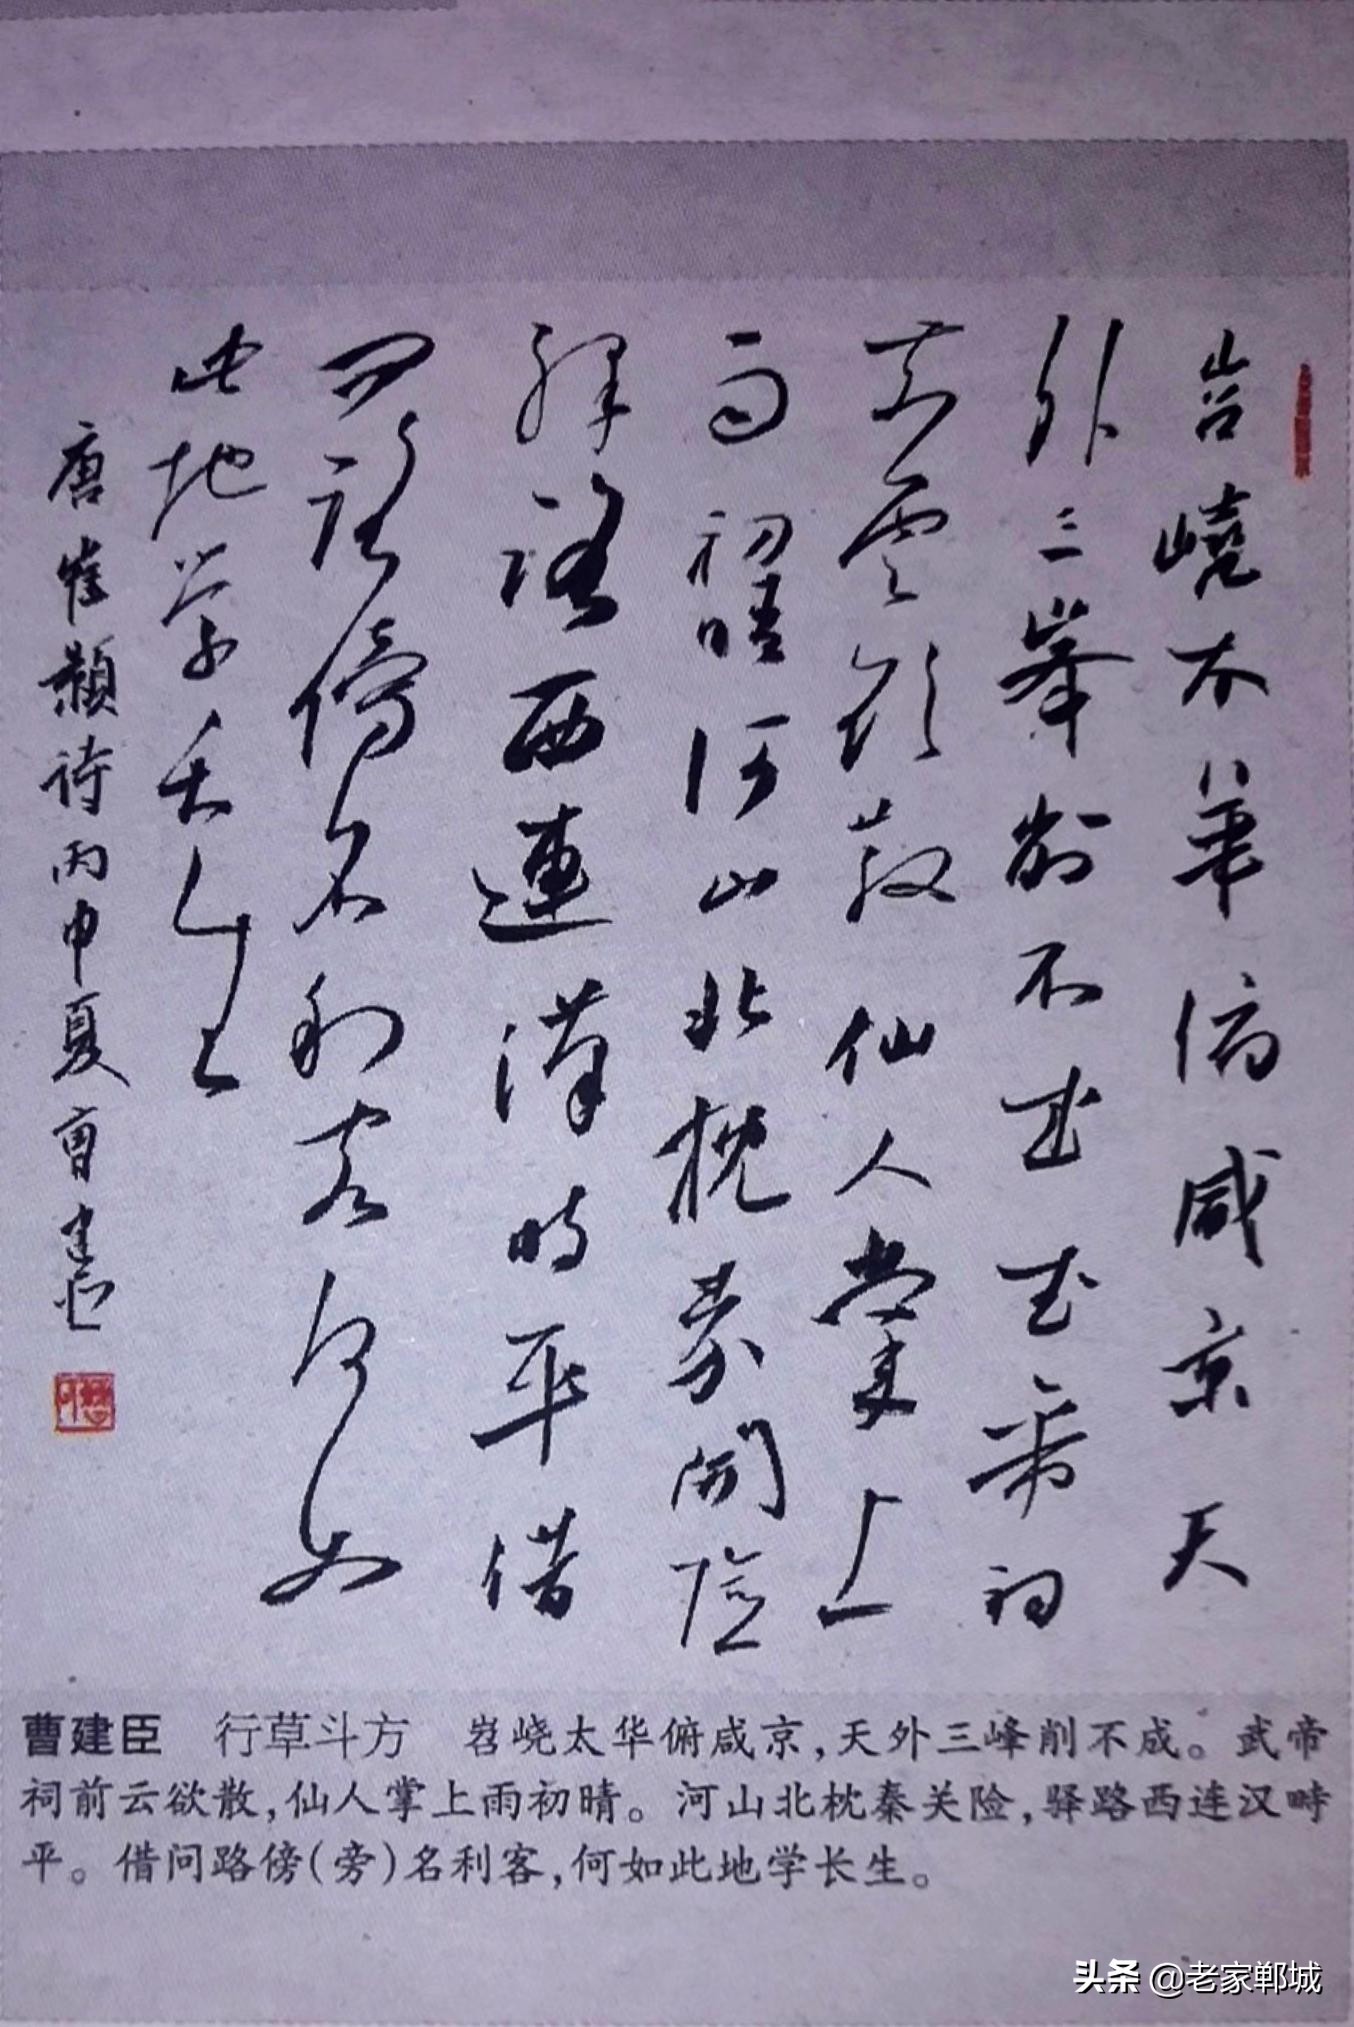 岧嶢太華俯咸京天
外三峯削不成武帝祠
前雲欲散仙人掌上
雨初晴河山北枕秦関險
驛路西連漢畤平借
问路傍名利客何如
此地学长生
唐崔颢诗丙申夏曹建臣
曹建臣 行草斗方 岧峣太华俯咸京,天外三峰削不成。武帝
祠前云欲散,仙人掌上雨初晴。河山北枕秦关险,驿路西连汉畤
平。借问路傍(旁)名利客,何如此地学长生。
头条 @老家郸城